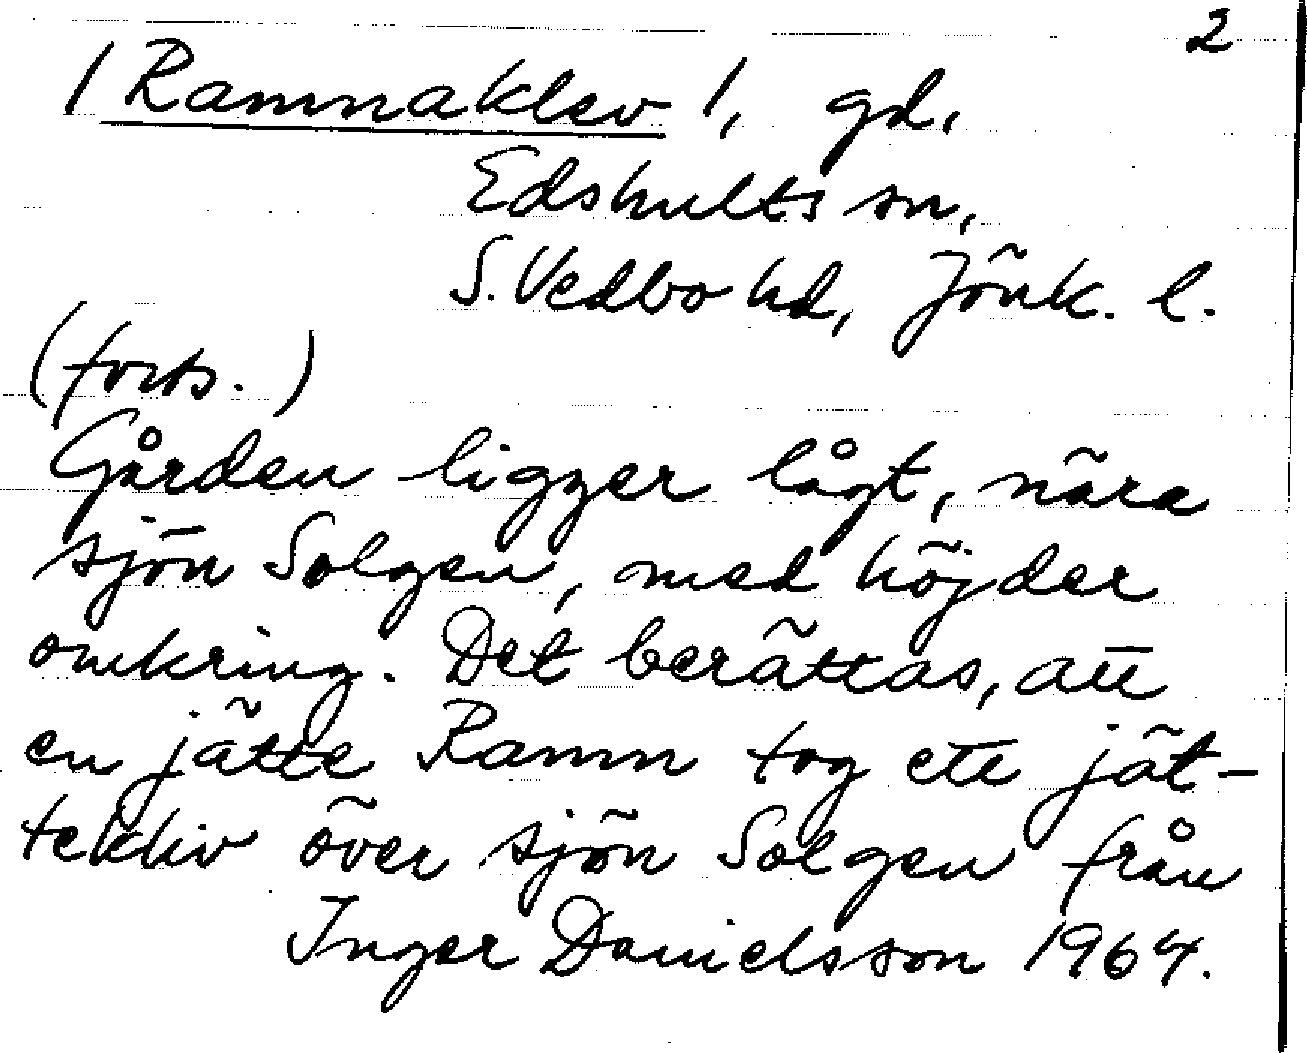 2
/ Ramnaklev /, gd,
Edshults sn,
S. Vedbo hd, Jönk. l.
(forts.)
Gården ligger lågt, nära
sjön Solgen, med höjder
omkring. Det berättas, att
en jätte Ramn tog ett jät-
tekliv över sjön Solgen från
Inger Danielsson 1964.